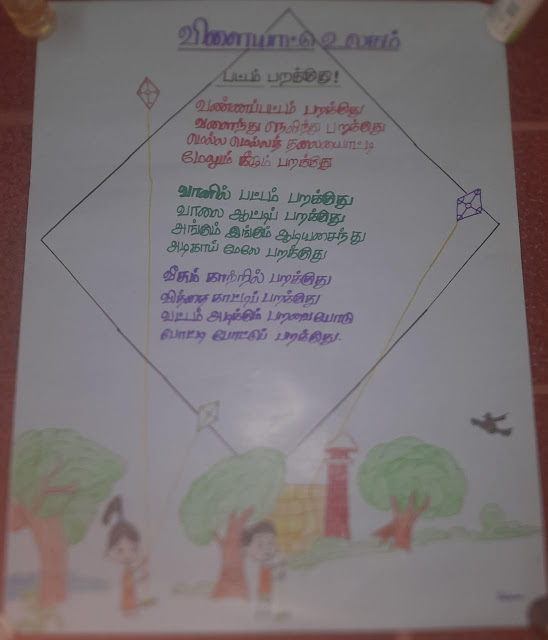 விளையாட்டு உலகம்
பட்டம் பறக்குது!
வண்ணப்பட்டம் பறக்குது
வளைந்து நெளிந்து பறக்குது
மெல்ல மெல்லத் தலையாட்டி
மேலும் கீழும் பறக்குது
வானில் பட்டம் பறக்குது
வாலை ஆட்டிப் பறக்குது
அங்கும் இங்கும் ஆடியசைந்து
அதிகாய் மேலே பறக்குது
வீசும் காற்றில் பறக்குது
வித்தை காட்டிப் பறக்குது
வட்டம் அடிக்கும் பறவையோடு
போட்டி போட்டுப் பறக்குது.